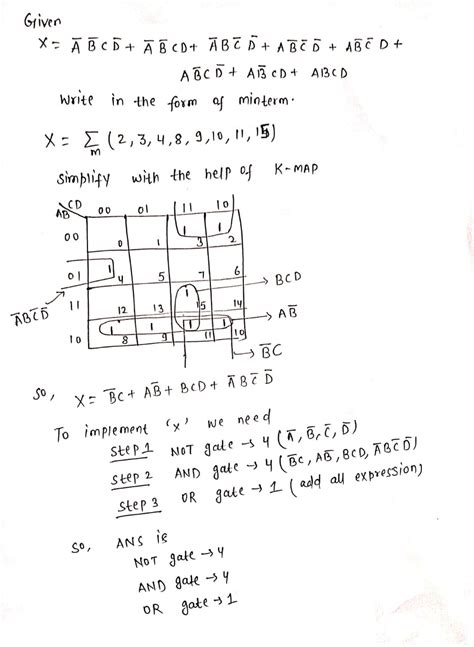 Given
X = A̅ B̅ C D̅ + A̅ B̅ C D + A̅ B C̅ D̅ + A B̅ C̅ D̅ + A B̅ C̅ D +
A B̅ C D̅ + A B̅ C D + A B C D
Write in the form of minterm.
X = Σm (2, 3, 4, 8, 9, 10, 11, 15)
Simplify with the help of K-MAP
AB CD 00 01 11 10
00 0 1 1 3 1 2
01 1 4 5 7 6
11 12 13 1 15 14
10 1 8 1 9 1 11 1 10
A̅ B C̅ D̅
BCD
A B̅
B̅ C
So, X = B̅ C + A B̅ + B C D + A̅ B C̅ D̅
To implement 'x' we need
Step 1 NOT gate → 4 (A̅, B̅, C̅, D̅)
Step 2 AND gate → 4 (B̅ C, A B̅, B C D, A̅ B C̅ D̅)
Step 3 OR gate → 1 (add all expression)
So, ANS is
NOT gate → 4
AND gate → 4
OR gate → 1